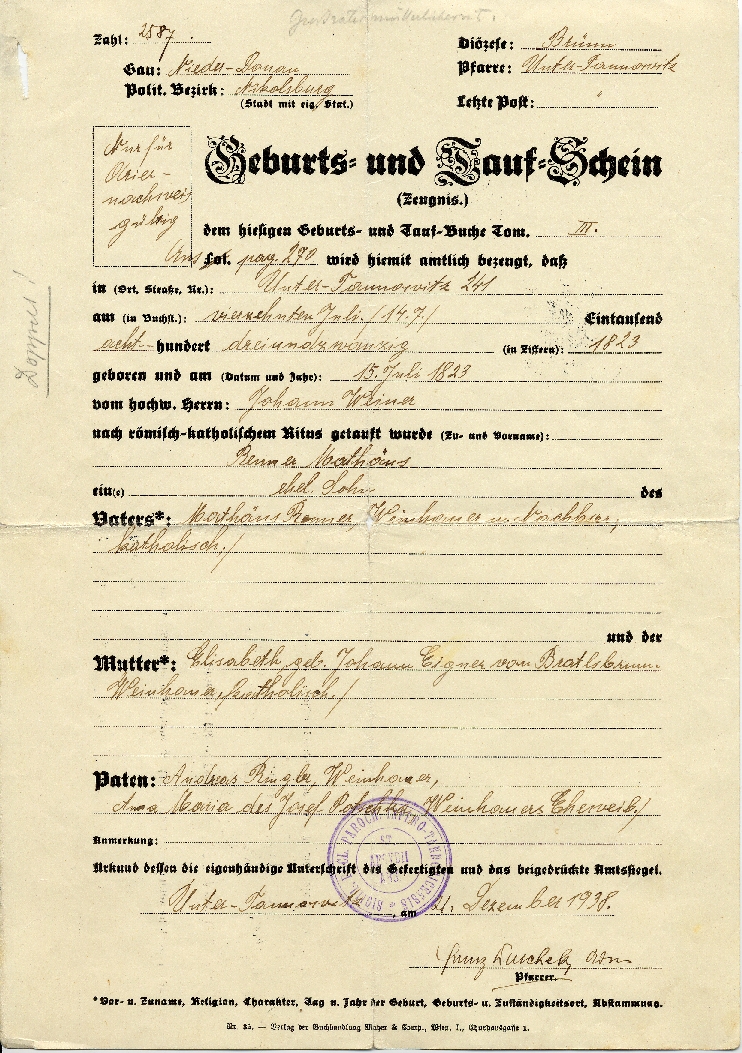 Zahl: 2587.
Diözese: Brünn
Gau: Nieder-Donau
Pfarre: Unter-Tannowitz
Polit. Bezirk: Nikolsburg
(Stadt mit eig. Stat.)
Letzte Post: "
Nur für
Arier-
nachweis
gültig
Geburts- und Tauf-Schein
(Zeugnis.)
Doppus!
Aus dem hiesigen Geburts- und Tauf-Buche Tom. III.
Fol. pag. 270 wird hiemit amtlich bezeugt, daß
in (Ort, Straße, Nr.): Unter-Tannowitz 241
am (in Buchst.): vierzehnten Juli /14.7./ Eintausend
acht-hundert dreiundzwanzig (in Ziffern): 1823
geboren und am (Datum und Jahr): 15. Juli 1823
vom hochw. Herrn: Johann Weiner
nach römisch-katholischem Ritus getauft wurde (Zu- und Vorname):
Renner Mathäus
ein(e) ehel. Sohn des
Vaters*: Mathäus Renner, Weinhauer u. Nachbar,
katholisch./
und der
Mutter*: Elisabeth, geb. Johann Eigner von Bratlsbrunn
Weinhauer, katholisch./
Paten: Andreas Ringler, Weinhauer,
Anna Maria des Josef Weinhauers Eheweib/
Anmerkung:
Urkund dessen die eigenhändige Unterschrift des Gefertigten und das beigedrückte Amtssiegel.
Unter-Tannowitz, am 21. Dezember 1938.
Pfarrer.
*Vor- u. Zuname, Religion, Charakter, Tag u. Jahr der Geburt, Geburts- u. Zuständigkeitsort, Abstammung.
Nr. 35. — Verlag der Buchhandlung Mayer & Comp., Wien, I., Singerstraße